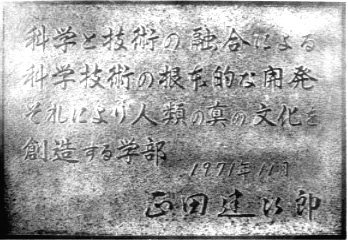 科学と技術の融合による
科学技術の根本的な開発
それにより人類の真の文化を
創造する学部
1971年11月
正田建次郎